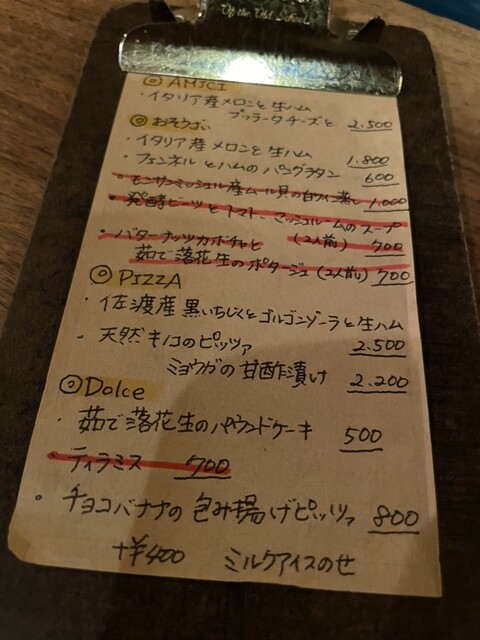 Of the Old School
◎ AMICI
・イタリア産メロンと生ハム
ブッラータチーズと 2.500
◎ おそうざい
・イタリア産メロンと生ハム 1.800
・フェンネルとハムのパングラタン 600
・モンサンミッシェル産ムール貝の白ワイン蒸し 1.000
・発酵ビーツとトマト、マッシュルームのスープ
(2人前) 700
・バターナッツカボチャと
茹で落花生のポタージュ(2人前) 700
◎ PIZZA
・佐渡産黒いちじくとゴルゴンゾーラと生ハム
2.500
・天然キノコのピッツァ
ミョウガの甘酢漬け 2.200
◎ Dolce
・茹で落花生のパウンドケーキ 500
・ティラミス 700
・チョコバナナの包み揚げピッツァ 800
+¥400 ミルクアイスのせ